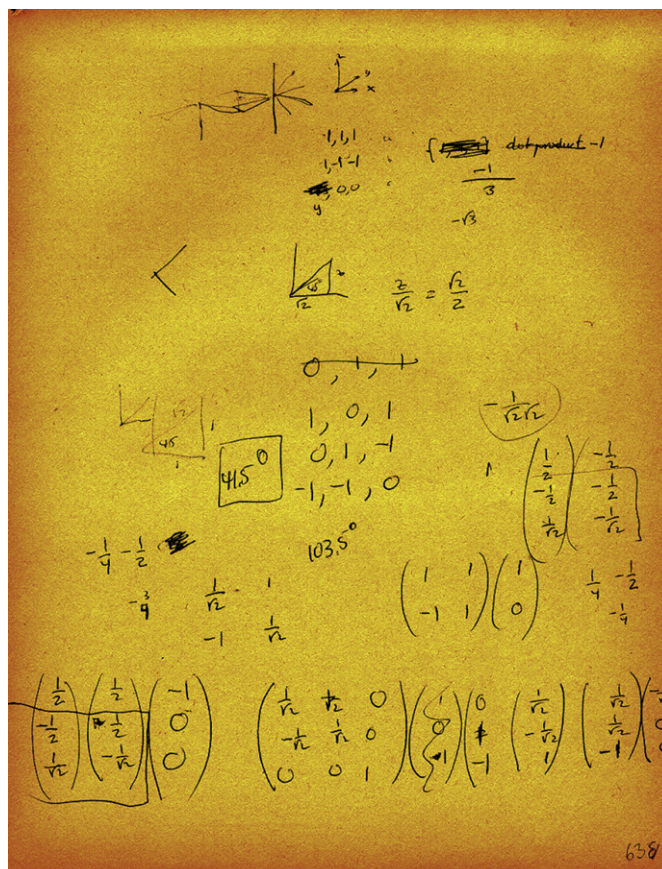 z
y
x
-1,1,1
1,-1-1
dot product -1
0,0
-1/3
y
-√3
√2
z/√2 = √2/2
0, 1, 1
√2
1
45
1
1, 0, 1
0, 1, -1
-1, -1, 0
-1/√2√2
41.5°
103.5°
(1/2 -1/2 1/√2) (-1/2 -1/2 -1/√2)
-1/4 -1/2
-3/4
1/√2 1
-1 1/√2
(1 1
-1 1) (1 0)
1/4 -1/2
-1/4
(1/2 -1/2 1/√2) (1/2 -1/2 -1/√2) (-1 0 0)
(1/√2 1/√2 0
-1/√2 1/√2 0
0 0 1) (1 0 -1) (0 1 -1) (1/√2 -1/√2 1) (1/√2 1/√2 -1)
638